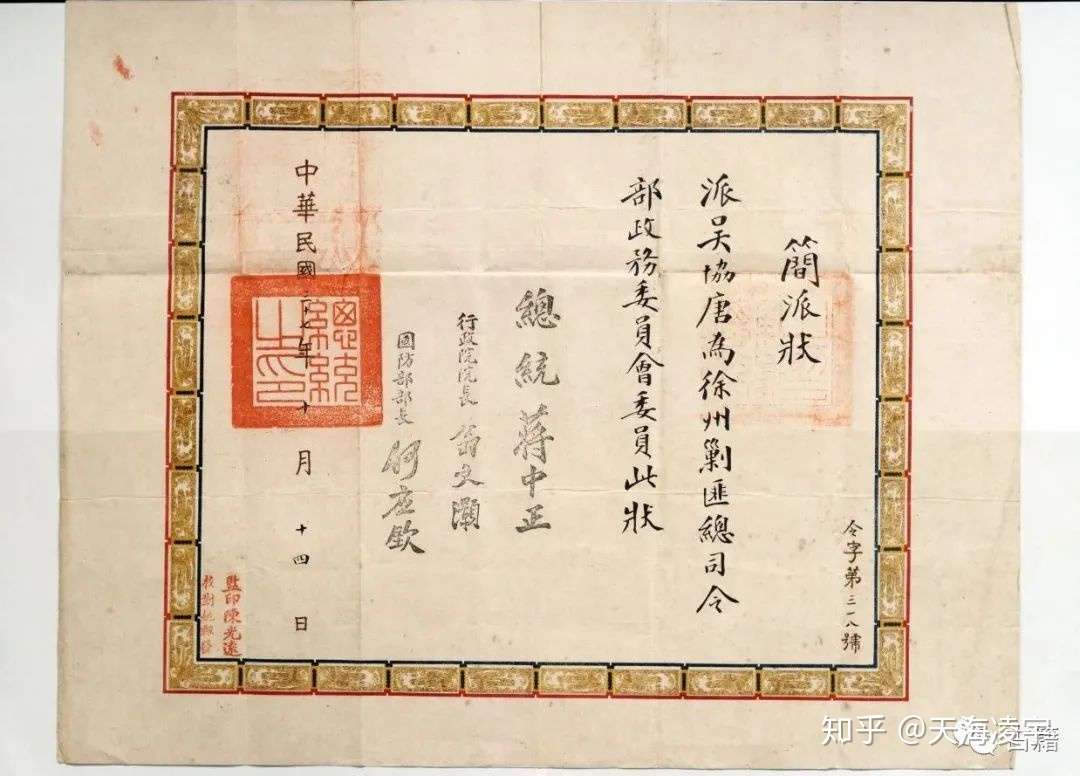 簡派狀
派吴協唐為徐州剿匪總司令
部政務委員會委員此狀
總統蔣中正
行政院院長翁文灝
國防部部長何應欽
中華民國三十七年十月十四日
總統之印
令字第三一八號
監印陳光遠
校對
知乎 @天海凌宇
古籍